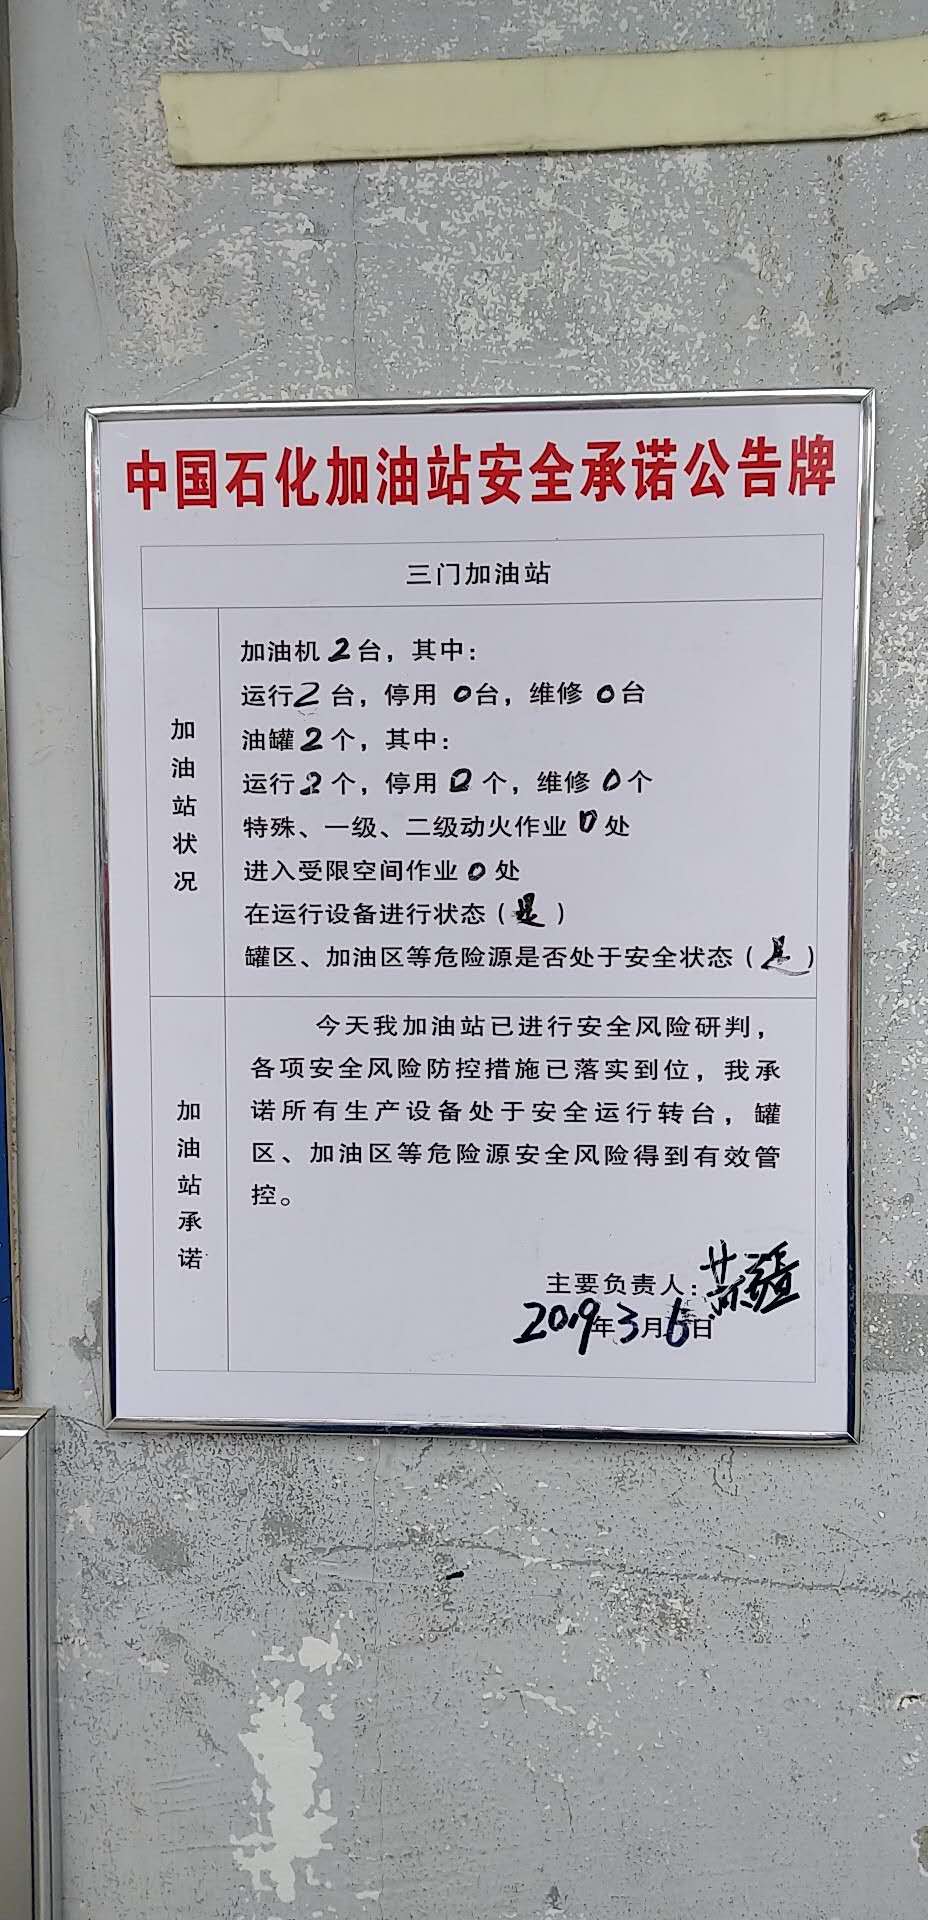 中国石化加油站安全承诺公告牌
三门加油站
加油站状况
加油机2台，其中：
运行2台，停用0台，维修0台
油罐2个，其中：
运行2个，停用0个，维修0个
特殊、一级、二级动火作业0处
进入受限空间作业0处
在运行设备进行状态（是）
罐区、加油区等危险源是否处于安全状态（是）
加油站承诺
今天我加油站已进行安全风险研判，
各项安全风险防控措施已落实到位，我承
诺所有生产设备处于安全运行转台，罐
区、加油区等危险源安全风险得到有效管
控。
主要负责人：
2019年3月6日